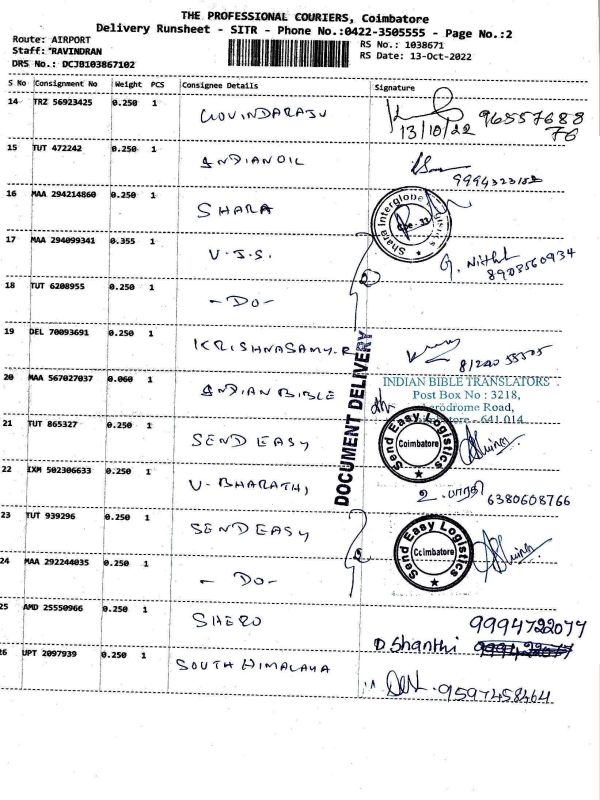 THE PROFESSIONAL COURIERS, Coimbatore
Delivery Runsheet - SITR - Phone No.:0422-3505555 - Page No.:2
Route: AIRPORT
Staff: *RAVINDRAN
DRS No.: DCJB103867102
RS No.: 1038671
RS Date: 13-Oct-2022
S No Consignment No Weight PCS Consignee Details Signature
14 TRZ 56923425 0.250 1 GOVINDARAJU
13/10/22 9655768876
15 TUT 472242 0.250 1 INDIANOIL
16 MAA 294214860 0.250 1 SHARA
Shara Interglobe Logistics
17 MAA 294099341 0.355 1 V.J.S.
8903560934
18 TUT 6208955 0.250 1 -DO-
19 DEL 70093691 0.250 1 KRISHNASAMY.R
20 MAA 567027037 0.060 1 INDIAN BIBLE
INDIAN BIBLE TRANSLATORS
Post Box No : 3218,
Aerodrome Road,
Coimbatore - 641 014
DOCUMENT DELIVERY
21 TUT 865327 0.250 1 SEND EASY
Send Easy Logistics
Coimbatore
22 IXM 502306633 0.250 1 V. BHARATHI
உ. பாரதி 6380608766
23 TUT 939296 0.250 1 SENDEASY
Send Easy Logistics
Coimbatore
24 MAA 292244035 0.250 1 -DO-
25 AMD 25550966 0.250 1 SHERO
9994722077
D Shanthi
26 UPT 2097939 0.250 1 SOUTH HIMALAYA
9597458464